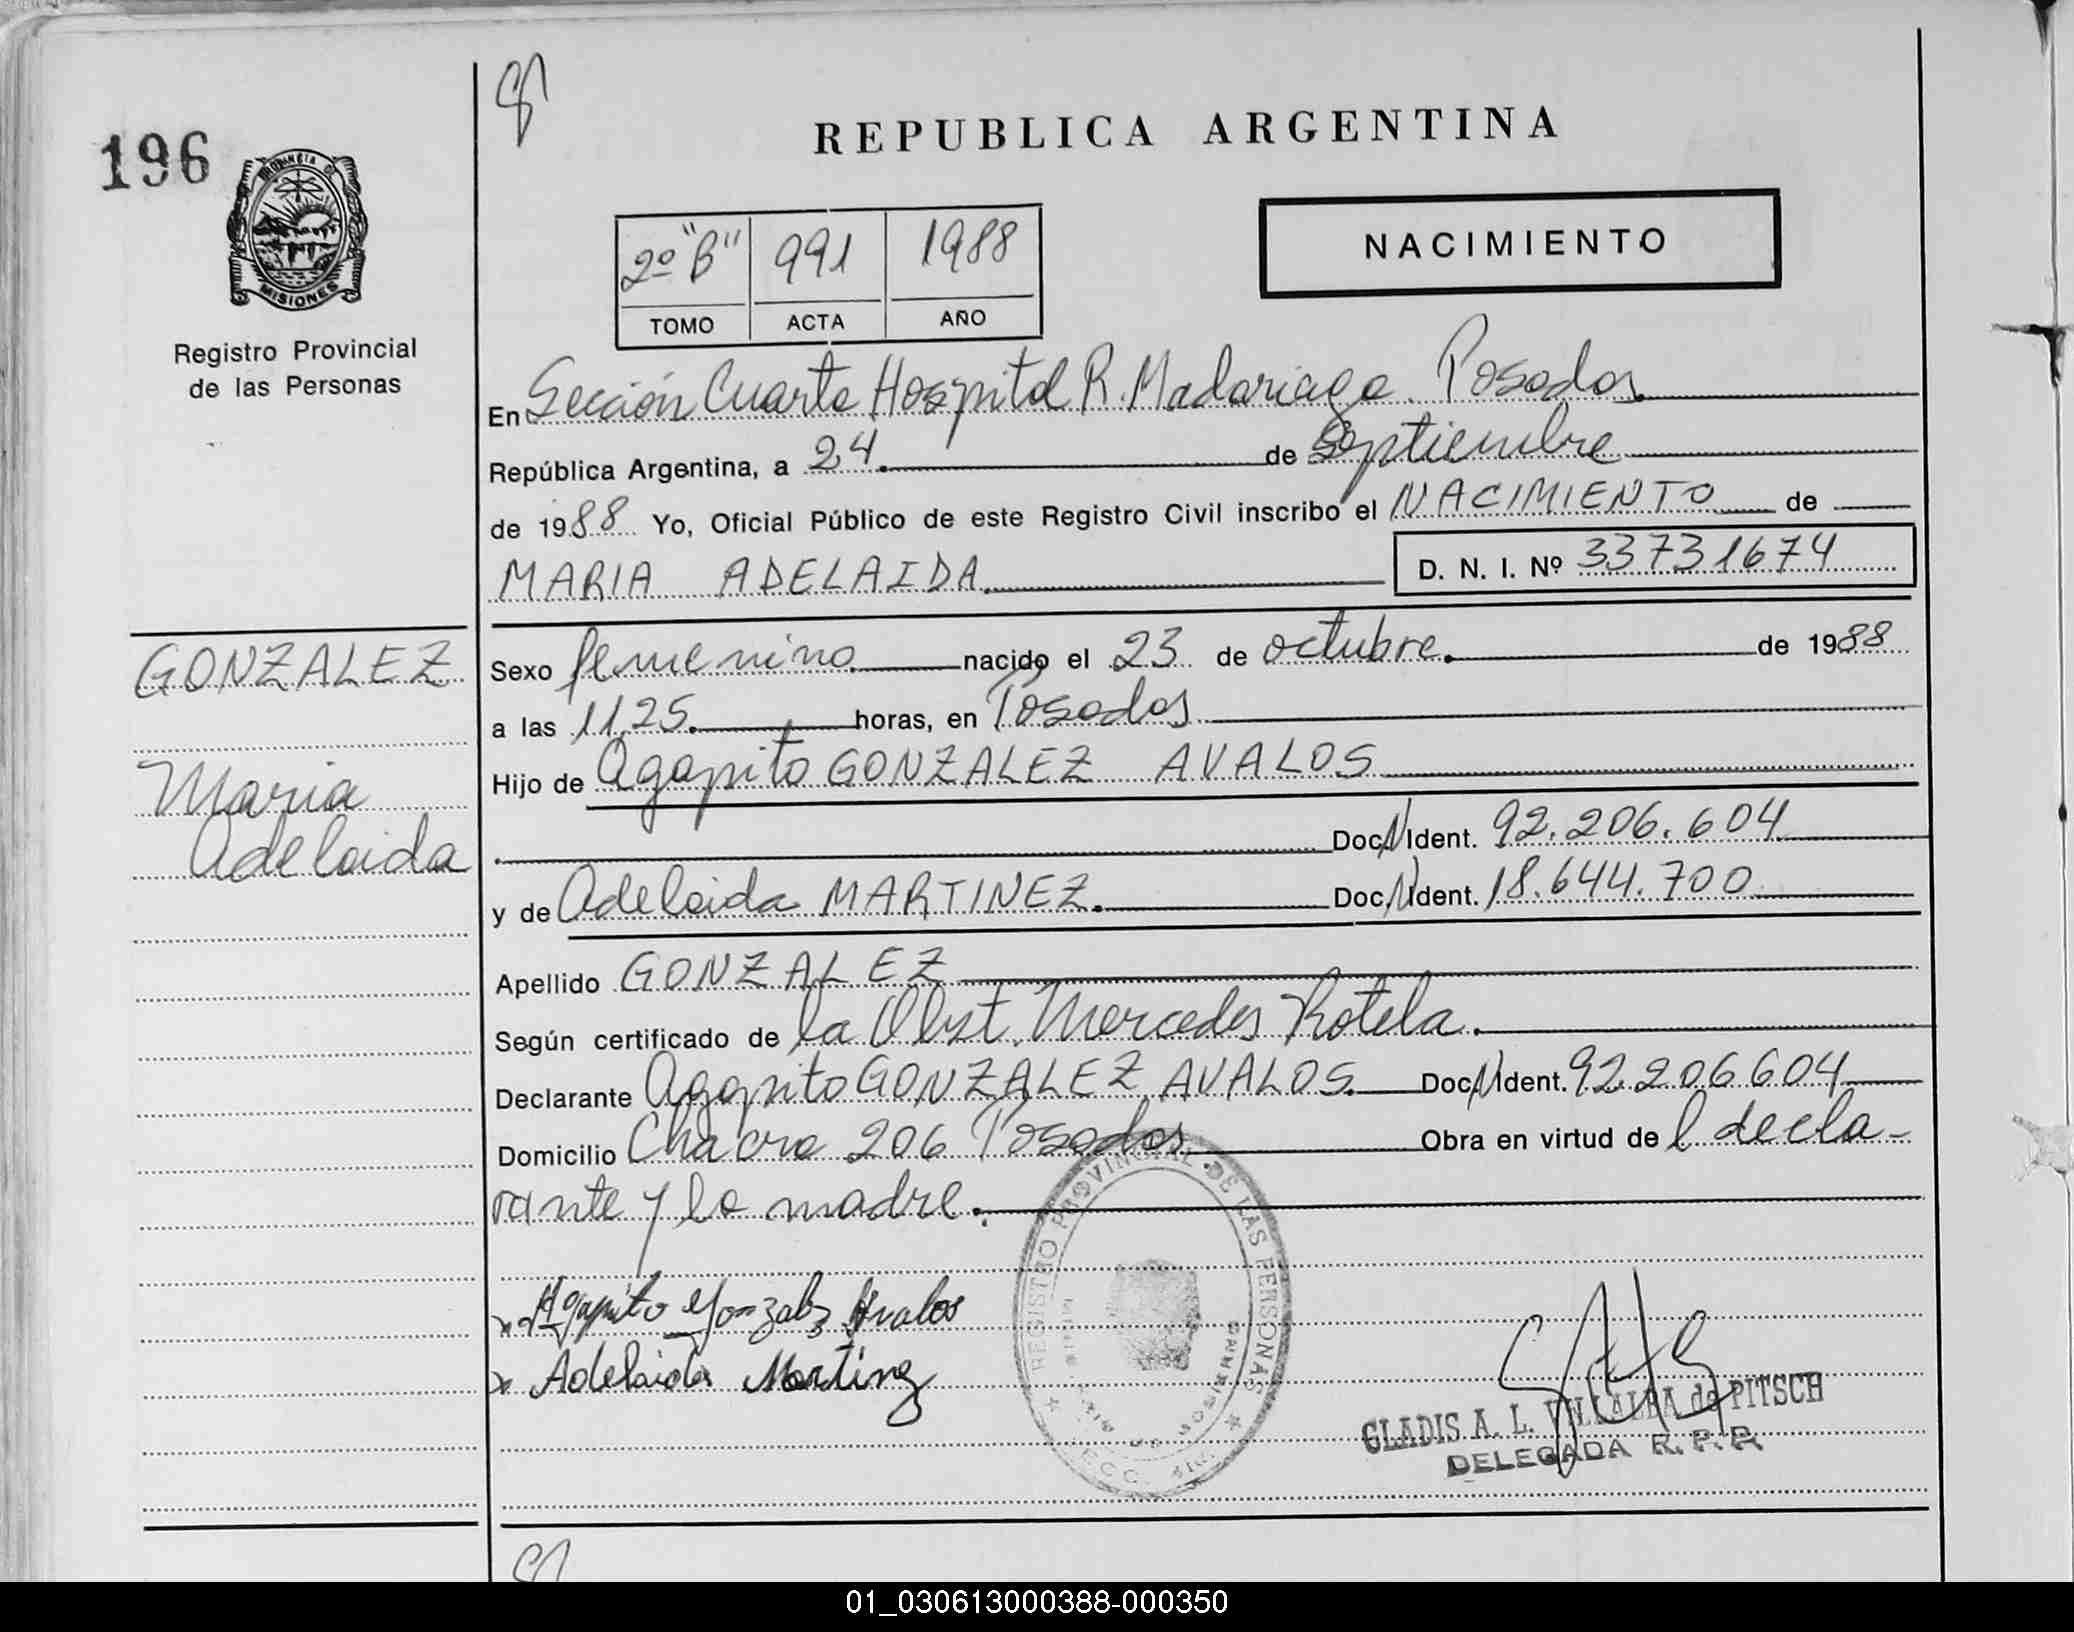 196
PROVINCIA DE
MISIONES
Registro Provincial
de las Personas
REPUBLICA ARGENTINA
2º "B" 991 1988
TOMO ACTA AÑO
NACIMIENTO
En Sección Cuarta Hospital R. Madariaga. Posadas
República Argentina, a 24. de Septiembre
de 1988 Yo, Oficial Público de este Registro Civil inscribo el NACIMIENTO de
MARIA ADELAIDA. D. N. I. Nº 33731674
GONZALEZ
Maria
Adelaida
Sexo femenino nacido el 23 de octubre. de 1988
a las 11,25. horas, en Posadas
Hijo de Agapito GONZALEZ AVALOS
Doc. N Ident. 92.206.604
y de Adelaida MARTINEZ. Doc. N Ident. 18.644.700
Apellido GONZALEZ
Según certificado de la Obst. Mercedes Rotela.
Declarante Agapito GONZALEZ AVALOS. Doc. N Ident. 92.206.604
Domicilio Chacra 206 Posadas Obra en virtud de l decla-
rante y la madre.
x Agapito Gonzalez Avalos
x Adelaida Martinez
REGISTRO PROVINCIAL DE LAS PERSONAS
GLADIS A. L. VILLALBA de PITSCH
DELEGADA R. P. P.
01_030613000388-000350